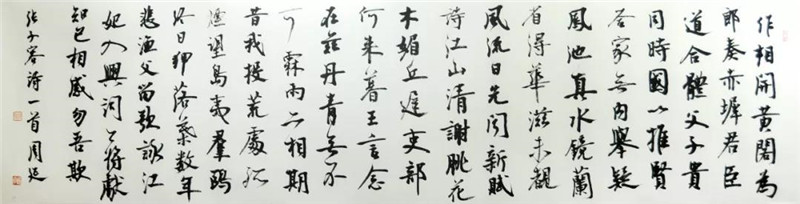 作相開黃閣為
郎奏赤墀君臣
道合體父子貴
同時國以推賢
答家无內舉疑
鳳池真水鏡蘭
省得華滋未觀
風流日先聞新賦
詩江山清謝朓花
木媚丘遲吏部
何來暮王言念
在茲丹青無不
可霖雨亦相期
昔我投荒處孤
煙望島夷羣鷗
終日狎落葉數年
悲漁父留歌詠江
妃入興詞今將獻
知己相感勿吾欺
張子容詩一首周